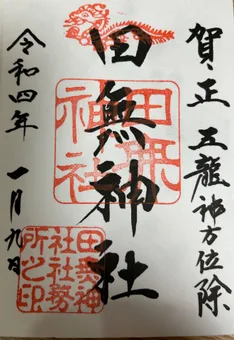 賀正 五龍神方位除
田無神社
田無神社
田無神社社務所之印
令和四年 一月九日